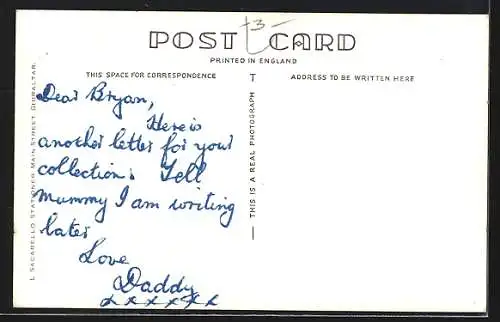 3-
POST CARD
PRINTED IN ENGLAND
THIS SPACE FOR CORRESPONDENCE
ADDRESS TO BE WRITTEN HERE
Dear Bryan,
Here is
another letter for your
collection. Tell
mummy I am writing
later
Love
Daddy
xxxxxx
THIS IS A REAL PHOTOGRAPH
L. SACARELLO STATIONER. MAIN STREET. GIBRALTAR.